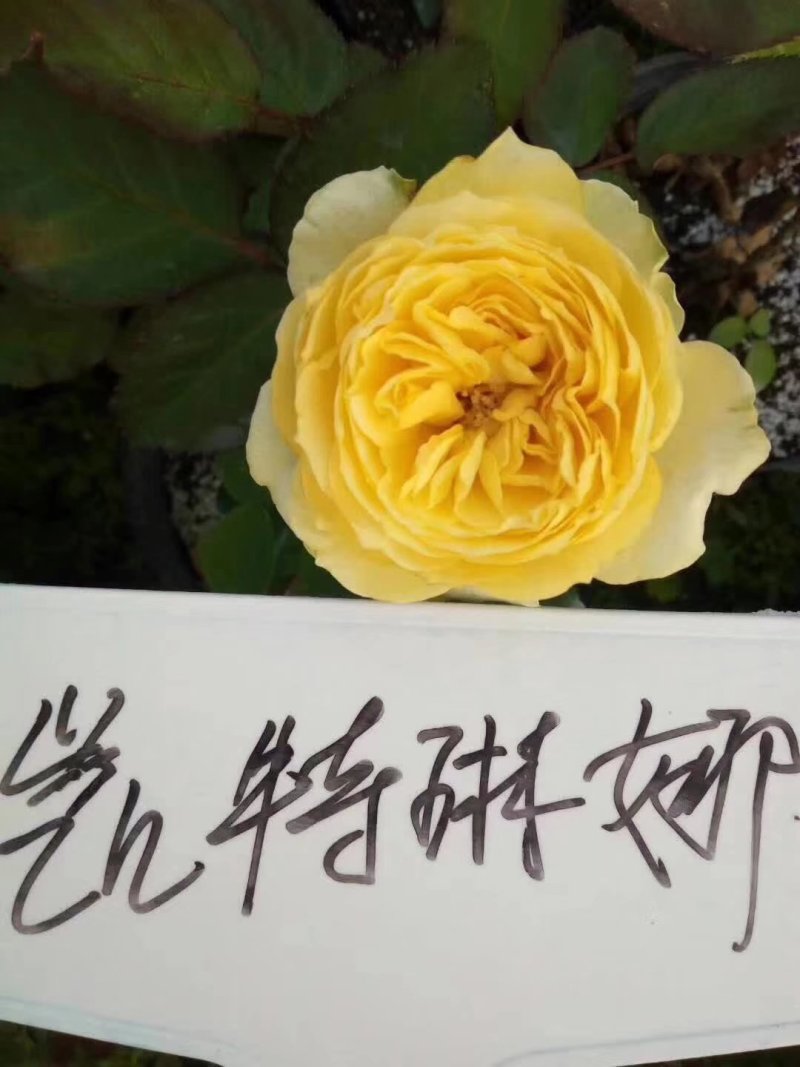 凯特琳娜